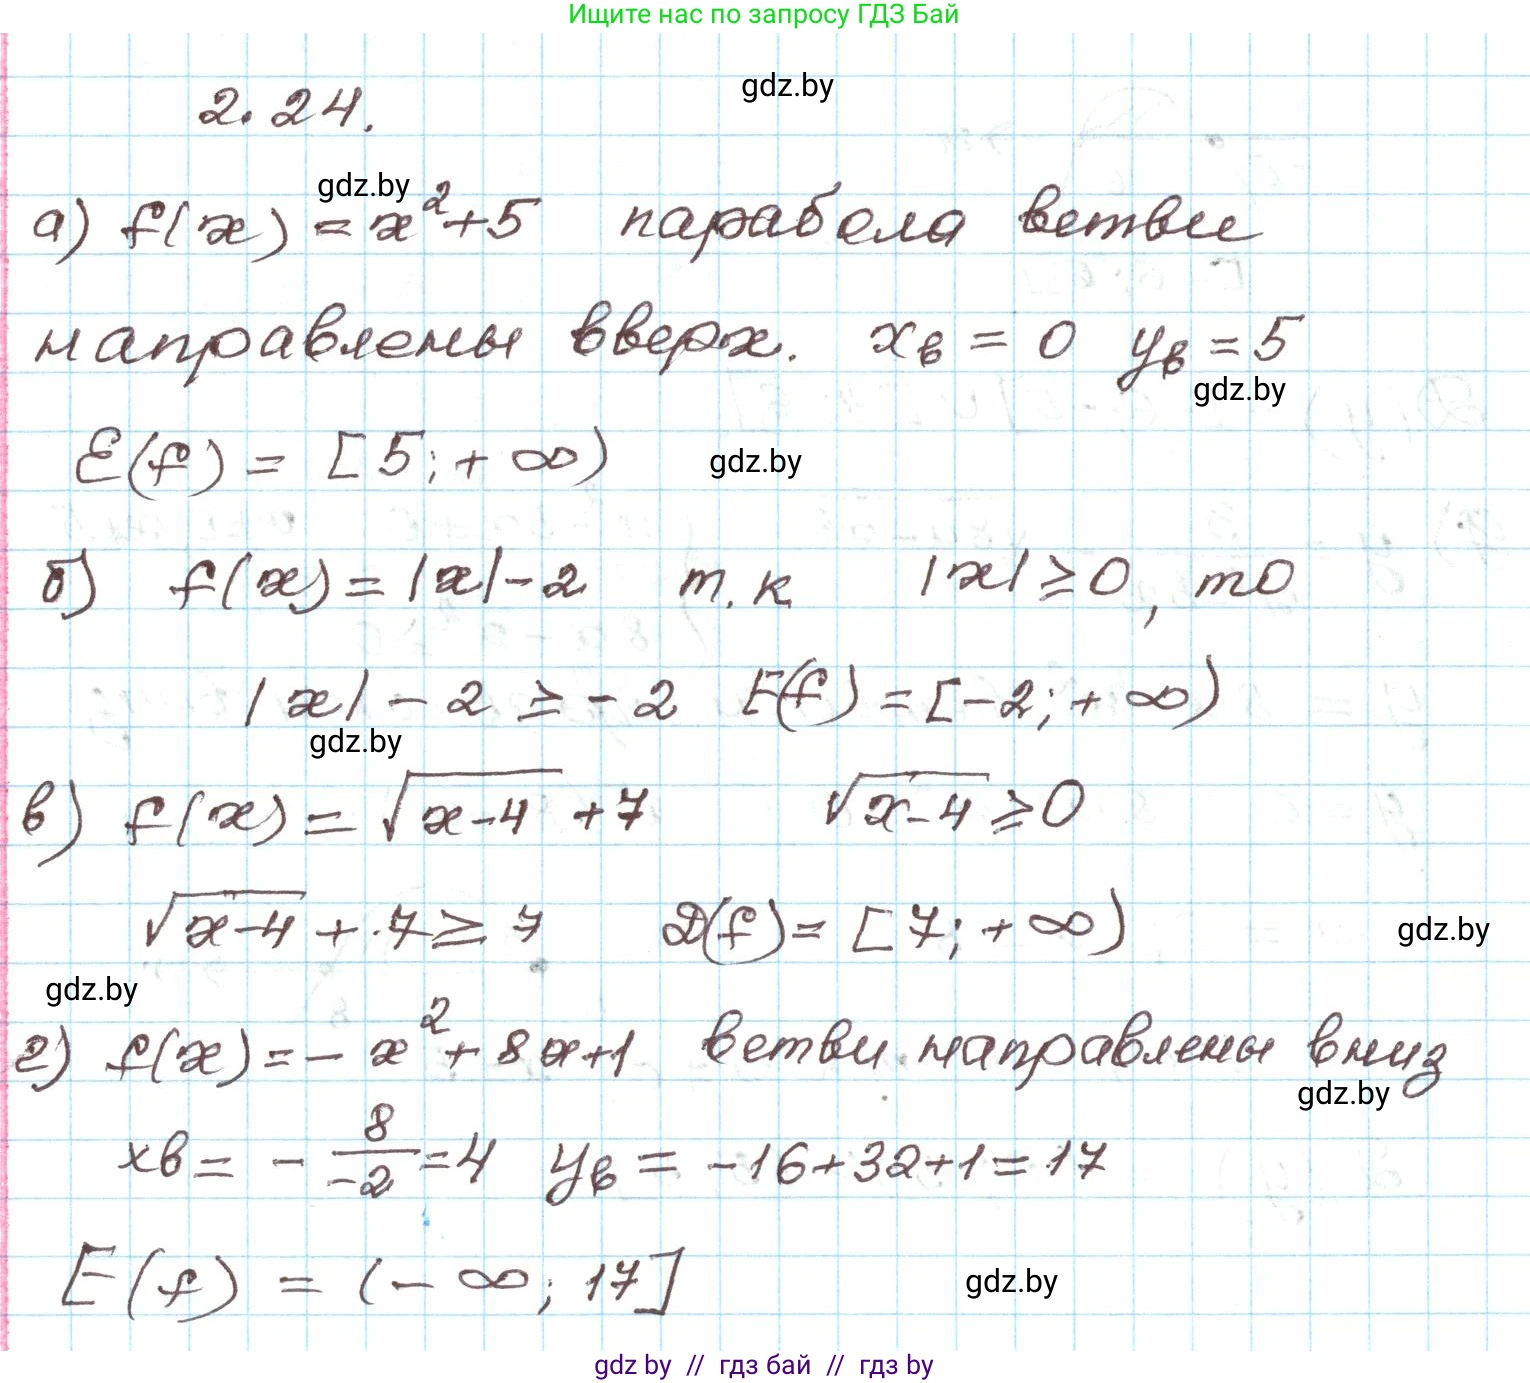 Ищите нас по запросу ГДЗ Бай
gdz.by
2.24.
gdz.by
а) f(x) = x²+5 парабола ветви
направлены вверх. xв = 0 yв = 5
gdz.by
E(f) = [5;+∞)
gdz.by
б) f(x) = |x|-2 т.к |x| ≥ 0, то
|x| - 2 ≥ -2 E(f) = [-2;+∞)
gdz.by
в) f(x) = √(x-4) + 7 √(x-4) ≥ 0
√(x-4) + 7 ≥ 7 D(f) = [7;+∞)
gdz.by
gdz.by
г) f(x) = -x² + 8x+1 ветви направлены вниз
gdz.by
xв = - 8/-2 = 4 yв = -16+32+1 = 17
E(f) = (-∞; 17]
gdz.by
gdz by // гдз бай // гдз by